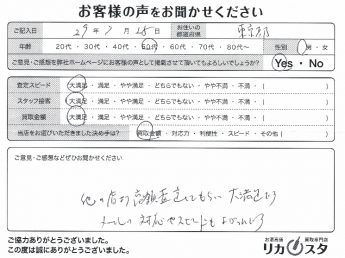 お客様の声をお聞かせください
ご記入日 29年7月28日 お住いの都道府県 東京都
年齢 20代・30代・40代・50代・60代・70代・80代〜 性別 男・女
ご意見・ご感想を弊社ホームページにお客様の声として掲載させて頂いてもよろしいでしょうか? Yes・No
査定スピード 大満足・満足・やや満足・どちらでもない・やや不満・不満・( )
スタッフ接客 大満足・満足・やや満足・どちらでもない・やや不満・不満・( )
買取金額 大満足・満足・やや満足・どちらでもない・やや不満・不満・( )
当店をお選びいただきました決め手は? 買取金額・対応力・利便性・スピード・その他( )
ご意見・ご感想などぜひお聞かせください
他の店より高額査定してもらい大満足です
メールの対応やスピードもよかったです
ご協力ありがとうございました。
この度は誠にありがとうございました。
お酒高価買取専門店
リカスタ